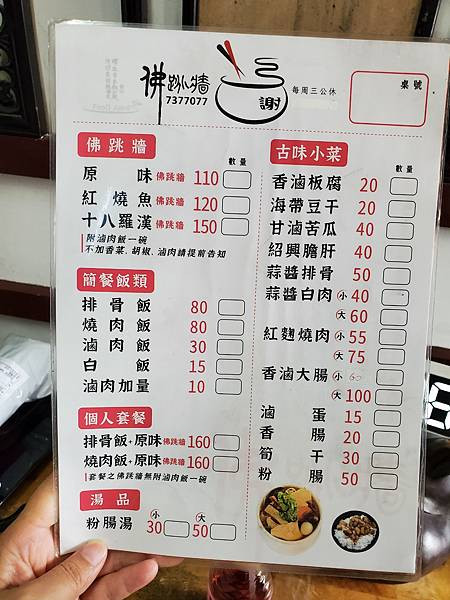 佛跳牆
7377077
謝
每周三公休
桌號
佛跳牆
數量
原味佛跳牆 110
紅燒魚佛跳牆 120
十八羅漢佛跳牆 150
附滷肉飯一碗
不加香菜、胡椒、滷肉請提前告知
簡餐飯類
排骨飯 80
燒肉飯 80
滷肉飯 30
白飯 15
滷肉加量 10
個人套餐
排骨飯+原味佛跳牆 160
燒肉飯+原味佛跳牆 160
套餐之佛跳牆無附滷肉飯一碗
湯品
粉腸湯 小30 大50
古味小菜
數量
香滷板腐 20
海帶豆干 20
甘滷苦瓜 40
紹興膽肝 40
蒜醬排骨 50
蒜醬白肉 小 40
大 60
紅麴燒肉 小 55
大 75
香滷大腸 小
大 100
滷蛋 15
香腸 20
筍干 30
粉腸 50